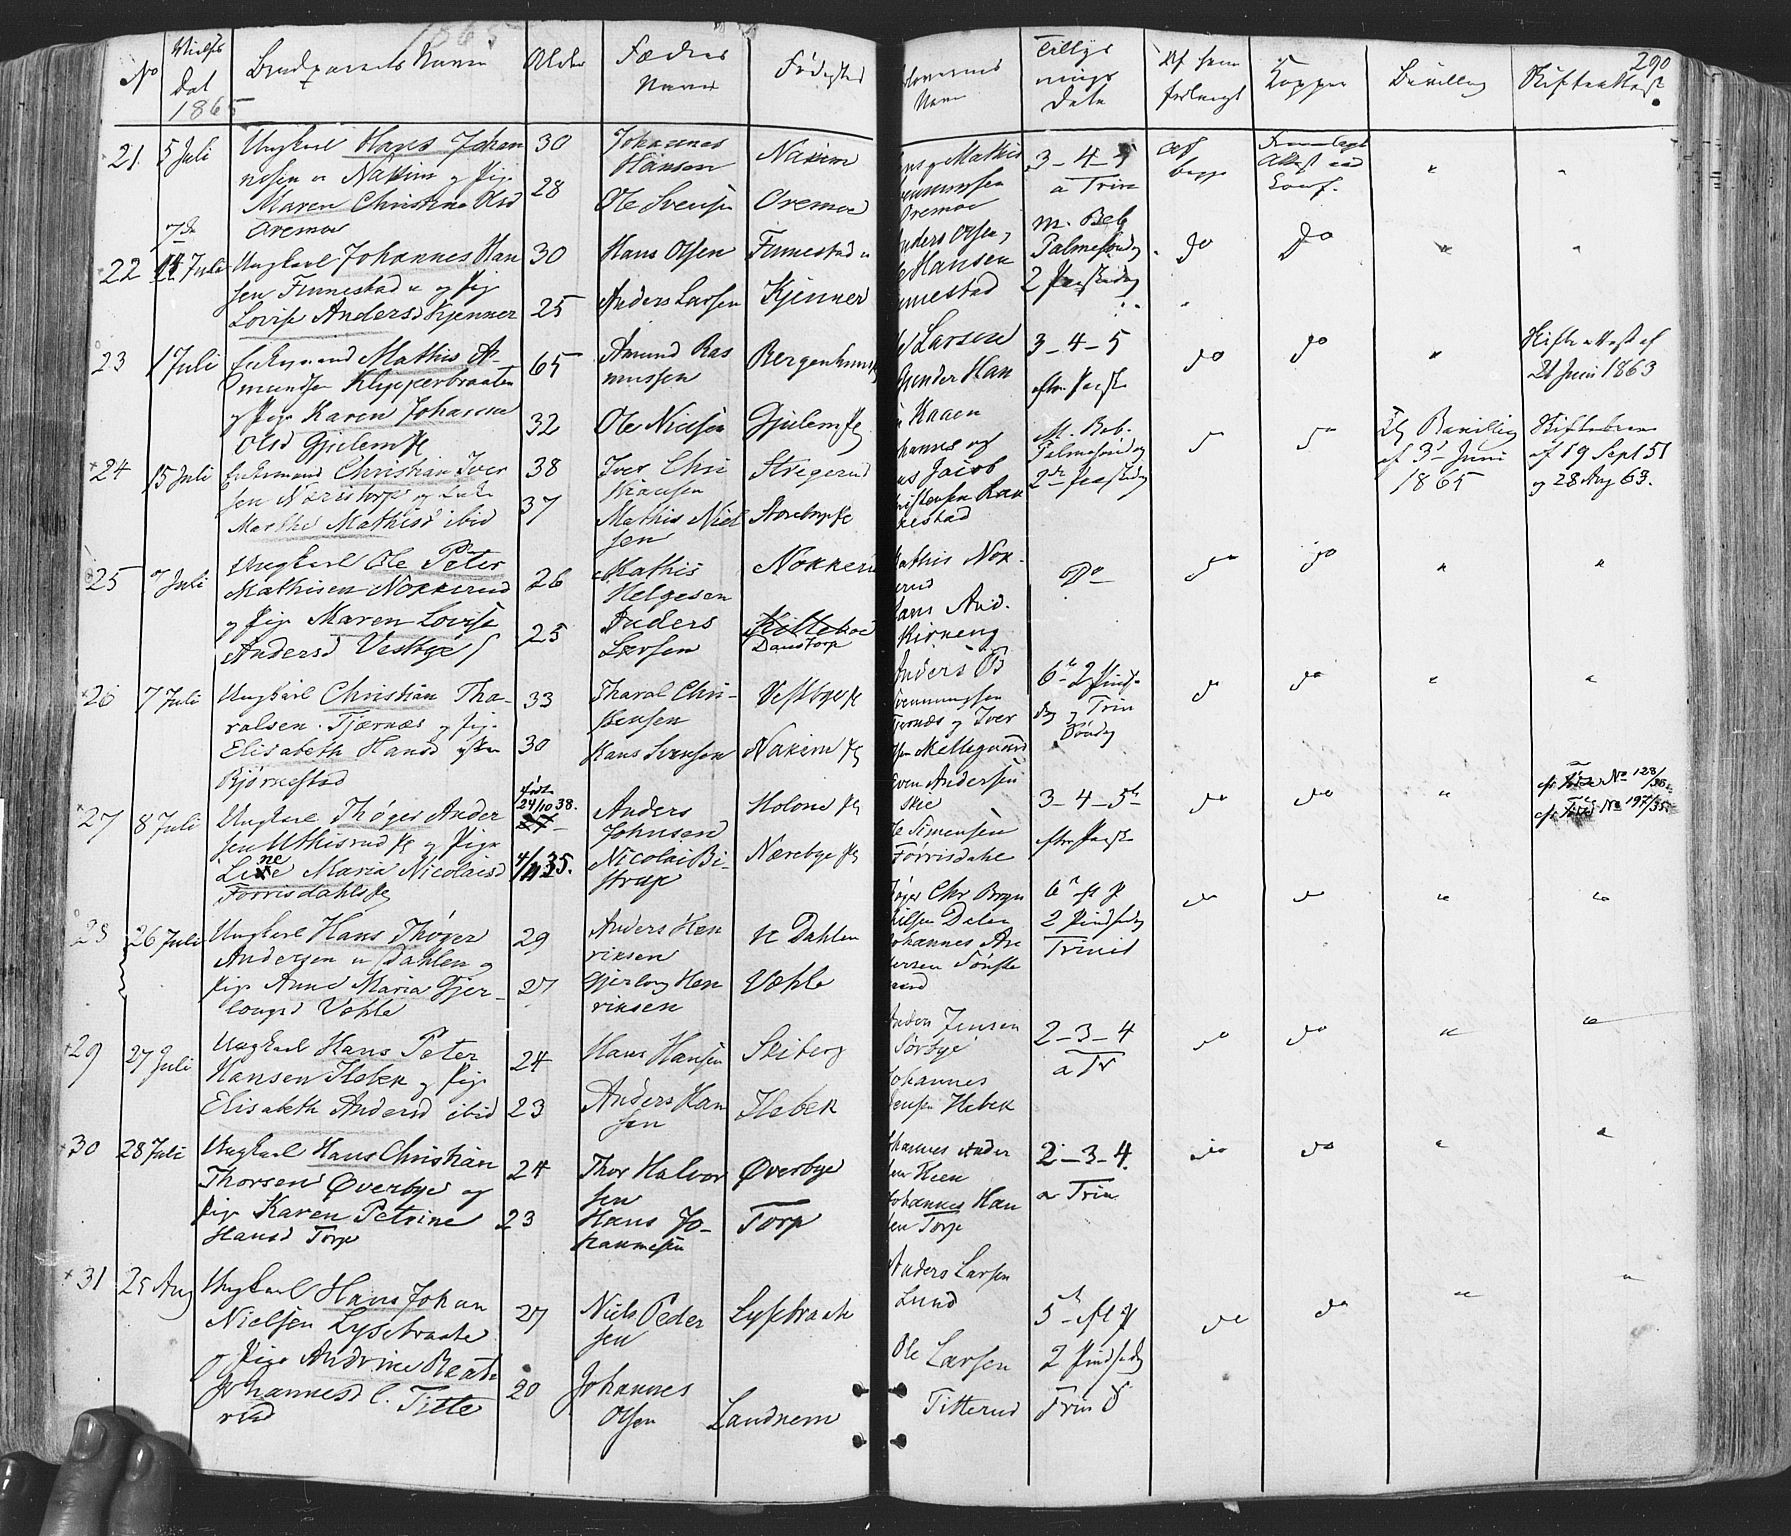 1865
290
No
Vielses
Dat
1865
Brudparrets Navn
Alder
Fædres
Navn
Fødested
Forlovernes
Navn
Tillys
nings
Data
Af hvem
forlangt
Kopper
Bevilling
Skifteattest
21. 5 Juli
Ungkarl Hans Johan
nesen u Nakim og Pige
Maren Christine Olsd
Oremoe
30
28
Johannes
Hansen
Ole Svensen
Nakim
Oremoe
Mathis
Oremoe
3-4-5
a Trin
af
begge
Attest ved
Conf.
"
"
22 14 Juli
Ungkarl Johannes Han
sen Finnestad u og Pige
Lovise Andersd Kjenner
30
25
Hans Olsen
Anders Larsen
Finnestad u
Kjenner
Anders Olsen,
Hansen
Finnestad
M. Beb
Palmesøndag
2 Paaskedag
do
Do
"
"
23 1 Juli
Enkemand Mathis A-
mundsen Klypperbraaten
og Pige Karen Johanne
Olsd Gjulem Eje
65
32
Amund Ras
mussen
Ole Nielsen
Bergenhuus
Gjulem Eje
Larsen
Gunder Han
Kaaen
3-4-5
efter Paaske
do
do
"
Skifteattest af
21 Juni 1863
24 15 Juli
Enkemand Christian Iver
sen Nærstorp og Enke
Marthe Mathisd ibid
38
37
Iver Chri
stiansen
Mathis Niel
sen
Stegerud
Johannes og
Jacob
Christensen
M. Beb.
Palmesøndag
2den Paaskedag
do
do
Bevilling
af 3d Juni
1865
Skiftebrev
af 19 Sept 51
og 28 Aug 63.
25 7 Juli
Ungkarl Ole Peter
Mathisen Nokkerud
og Pige Maren Lovise
Andersd Vestbye
26
25
Mathis
Helgesen
Anders
Larsen
Nokkerud
Danstorp
Mathis Nok-
kerud
Hans And.
Kirkeng
Do
do
do
"
"
26 7 Juli
Ungkarl Christian Tho-
ralsen Tjærnæs og Pige
Elisabeth Hansd
Bjørnestad
33
30
Thoral Chri-
stensen
Hans Svensen
Vestbye Eje
Nakim Eje
Anders
Svenningsen
Tjernæs og Iver
Mellegaard
6te 2 Pintse
dag og Trin
Søndag
do
do
"
"
27 8 Juli
Ungkarl Thøger Ander
sen Uthusrud Eje og Pige
Line Maria Nicolaisd
Torrisdahls Eje
født
24/10 38.
27
4/11 35.
Anders
Johnsen
Nicolai Bi-
strup
Holone Eje
Nærebye Eje
Even Andersen
Skie
Ole Simensen
Torrisdahl
3-4-5te
efter Paaske
do
do
"
No 128/
No 197/35
28 26 Juli
Ungkarl Hans Thøger
Andersen u Dahlen og
Pige Anne Maria Gjer-
lougsd Vehle
29
27
Anders Hen
riksen
Gjerloug Hen
riksen
u Dahlen
Vehle
Thøger Chr
Dalen
Johannes An
dersen
6te eft P
2 Pindsedag
Trinit
do
do
"
"
29 27 Juli
Ungkarl Hans Peter
Hansen Ilebek og Pige
Elisabeth Andersd ibid
24
23
Hans Hansen
Anders Han
sen
Skiberg
Ilebek
Anders Jensen
Sørbye
Johannes
Jensen Ilebek
2-3-4
a Tr
do
do
"
"
30 28 Juli
Ungkarl Hans Christian
Thorsen Øverbye og
Pige Karen Petrine
Hansd Torp
24
23
Thor Halvor
sen
Hans Jo-
hannesen
Øverbye
Torp
Johannes Ander
sen Keen
Johannes Han
sen Torp
2-3-4.
a Trin
do
do
"
"
31 25 Aug
Ungkarl Hans Johan
Nielsen Lysebraate
og Pige Andrine Beate
Johannesd l. Titte
rud
27
20
Niels Peder
sen
Johannes
Olsen
Lysebraate
Landnem
Anders Larsen
Lund
Ole Larsen
Titterud
5te eft P
2 Pindsedag
Trin S
do
do
"
"